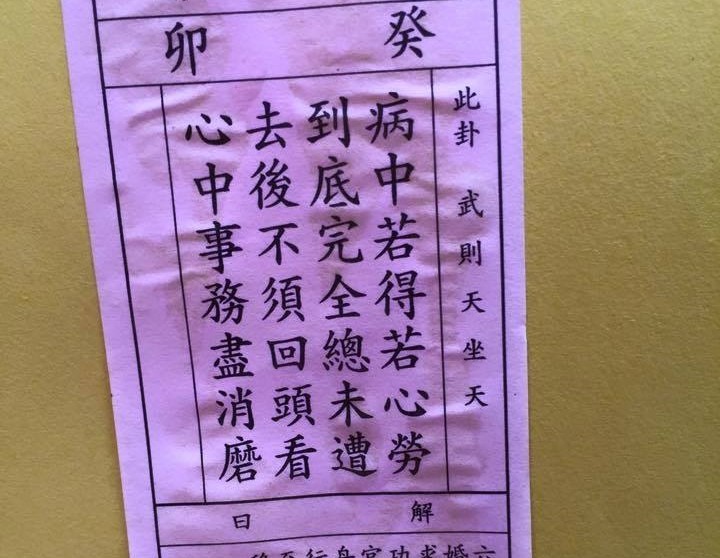 癸卯
此卦 武則天坐天
病中若得若心勞
到底完全總未遭
去後不須回頭看
心中事務盡消磨
解曰